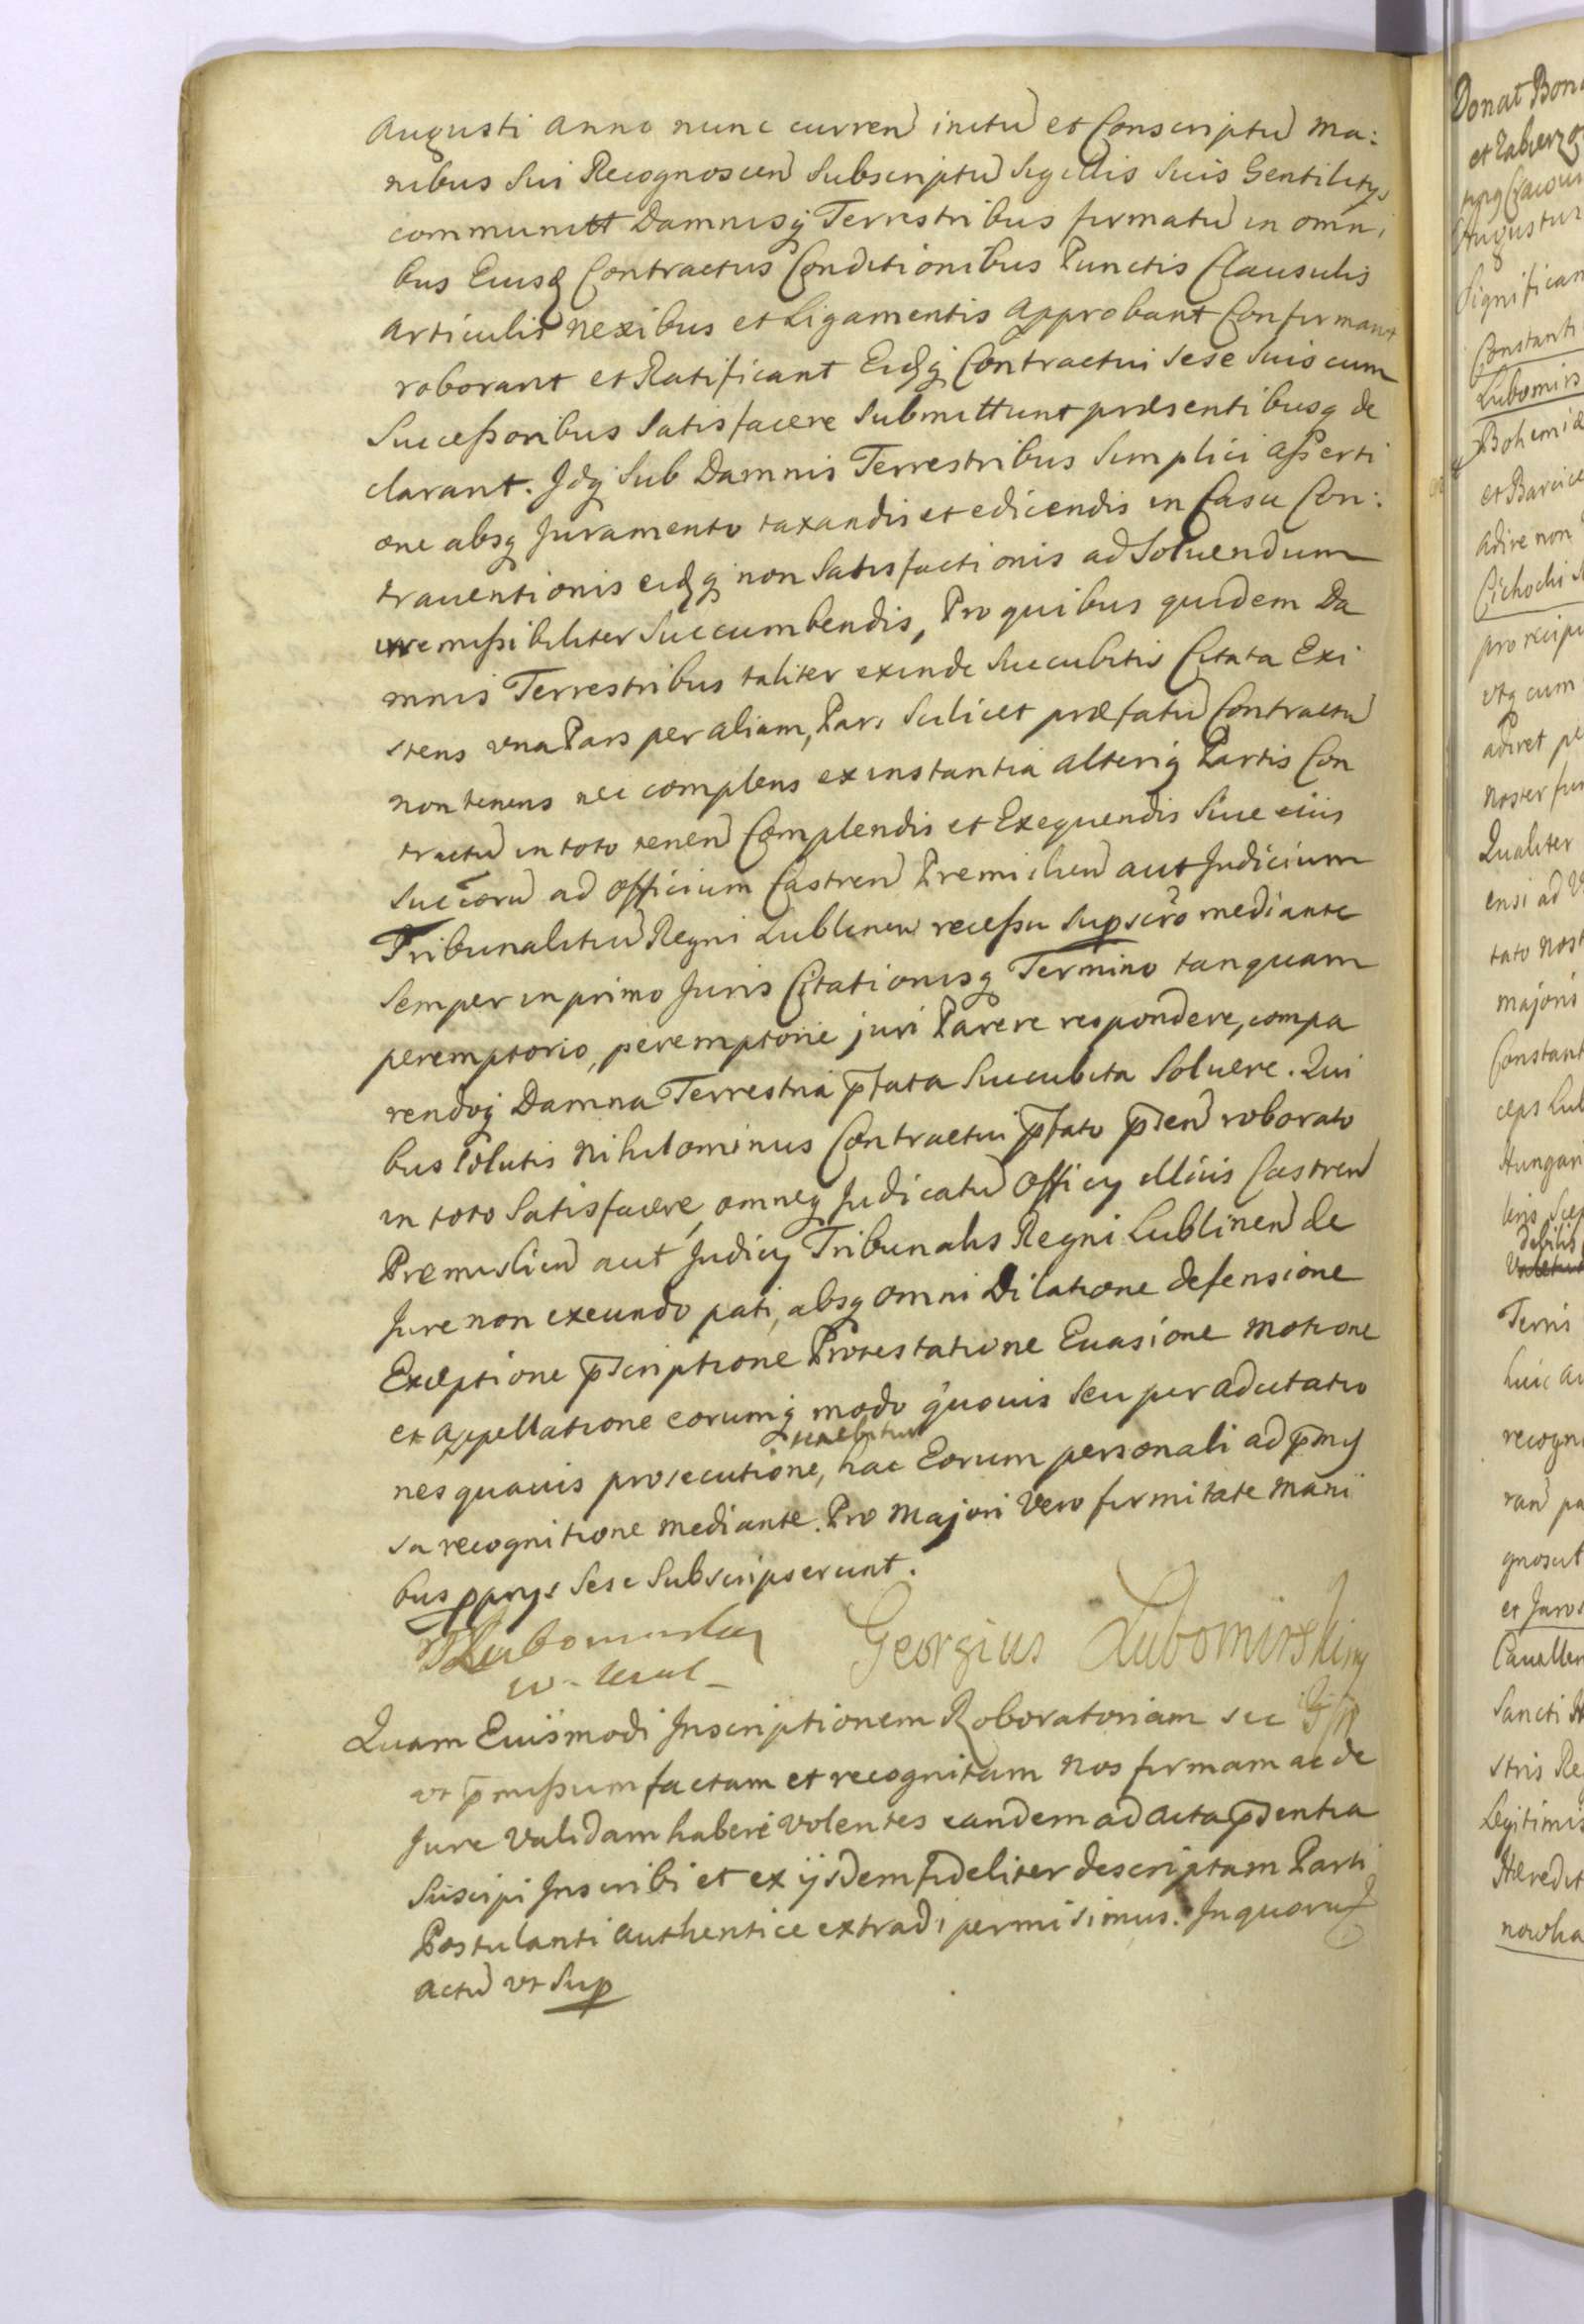 Augusti Anno nunc curren initu et Conscriptu Ma:
nibus Sui Recognoscen Subscriptu Sigillis Suis Gentilitys
communitt Damnisq Terrestribus firmatu in omni
bus Eiusq Contractus Conditionibus Punctis Clausulis
Articulis nexibus et Ligamentis Approbant Confirmant
roborant et Ratificant Eidq Contractui Sese Suis cum
Successoribus Satisfacere Submittunt præsentibusq de
clarant. Idq Sub Damnis Terrestribus Simplici Asserti
one absq Juramento taxandis et edicendis in Casu Con:
trauentionis eidq non Satisfactionis ad Soluendum
irremissibiliter Succumbendis, Pro quibus quidem Da
mnis Terrestribus taliter exinde Succubitis Citata Exi
stens vna Pars per aliam, Pars Scilicet præfatu Contractu
non tenens nec complens ex instantia alteriq Partis Con
tractu in toto tenen Complendis et Exequendis Siue eius
Succoru ad Officium Castren Premislien aut Judicium
Tribunalitiu Regni Lublinen recessu Supscro mediante
Semper in primo Juris Citationisq Termino tanquam
peremptorio, peremptorie juri Parere respondere, compa
rendoq Damna Terrestria pfata Succubita Soluere. Qui
bus Solutis nihilominus Contractui pfato psen roborato
in toto Satisfacere, omneq Judicatu Officy illius Castren
Premislien aut Judicy Tribunalis Regni Lublinen de
Jure non exeundo pati, absq omni Dilatione defensione
Exceptione pscriptione Protestatione Euasione motione
et Appellatione eorumq modo quouis seu per adcitatio
nes quauis prosecutione, tenebitur hac Eorum personali ad pmis
sa recognitione mediante. Pro Majori Vero firmitate Mani
bus pprys Sese Subscripserunt.
Lubomirsky Georgius Lubomirskimp
Quam Euismodi Inscriptionem Roboratoriam sic
vt pmissum factam et recognitam Nos firmam ac de
Jure Validam haberi Volentes eandem ad Acta psentia
Suscipi Inscribi et ex ijsdem fideliter descriptam Parti
Postulanti Authentice extradi permisimus. In quoru f
Actu vt Sup
Donat
Significan
Constanti
Lubomirs
Bohemiæ
Adire non
Cichocki
etq cum
Qualiter
ensi ad
tato nost
majoris
Constant
ceps Lub
Hungar
Terris
recogn
gnoscit
et Jaros
Cauallier
Sancti
stris Re
Legitimis
Hæredit